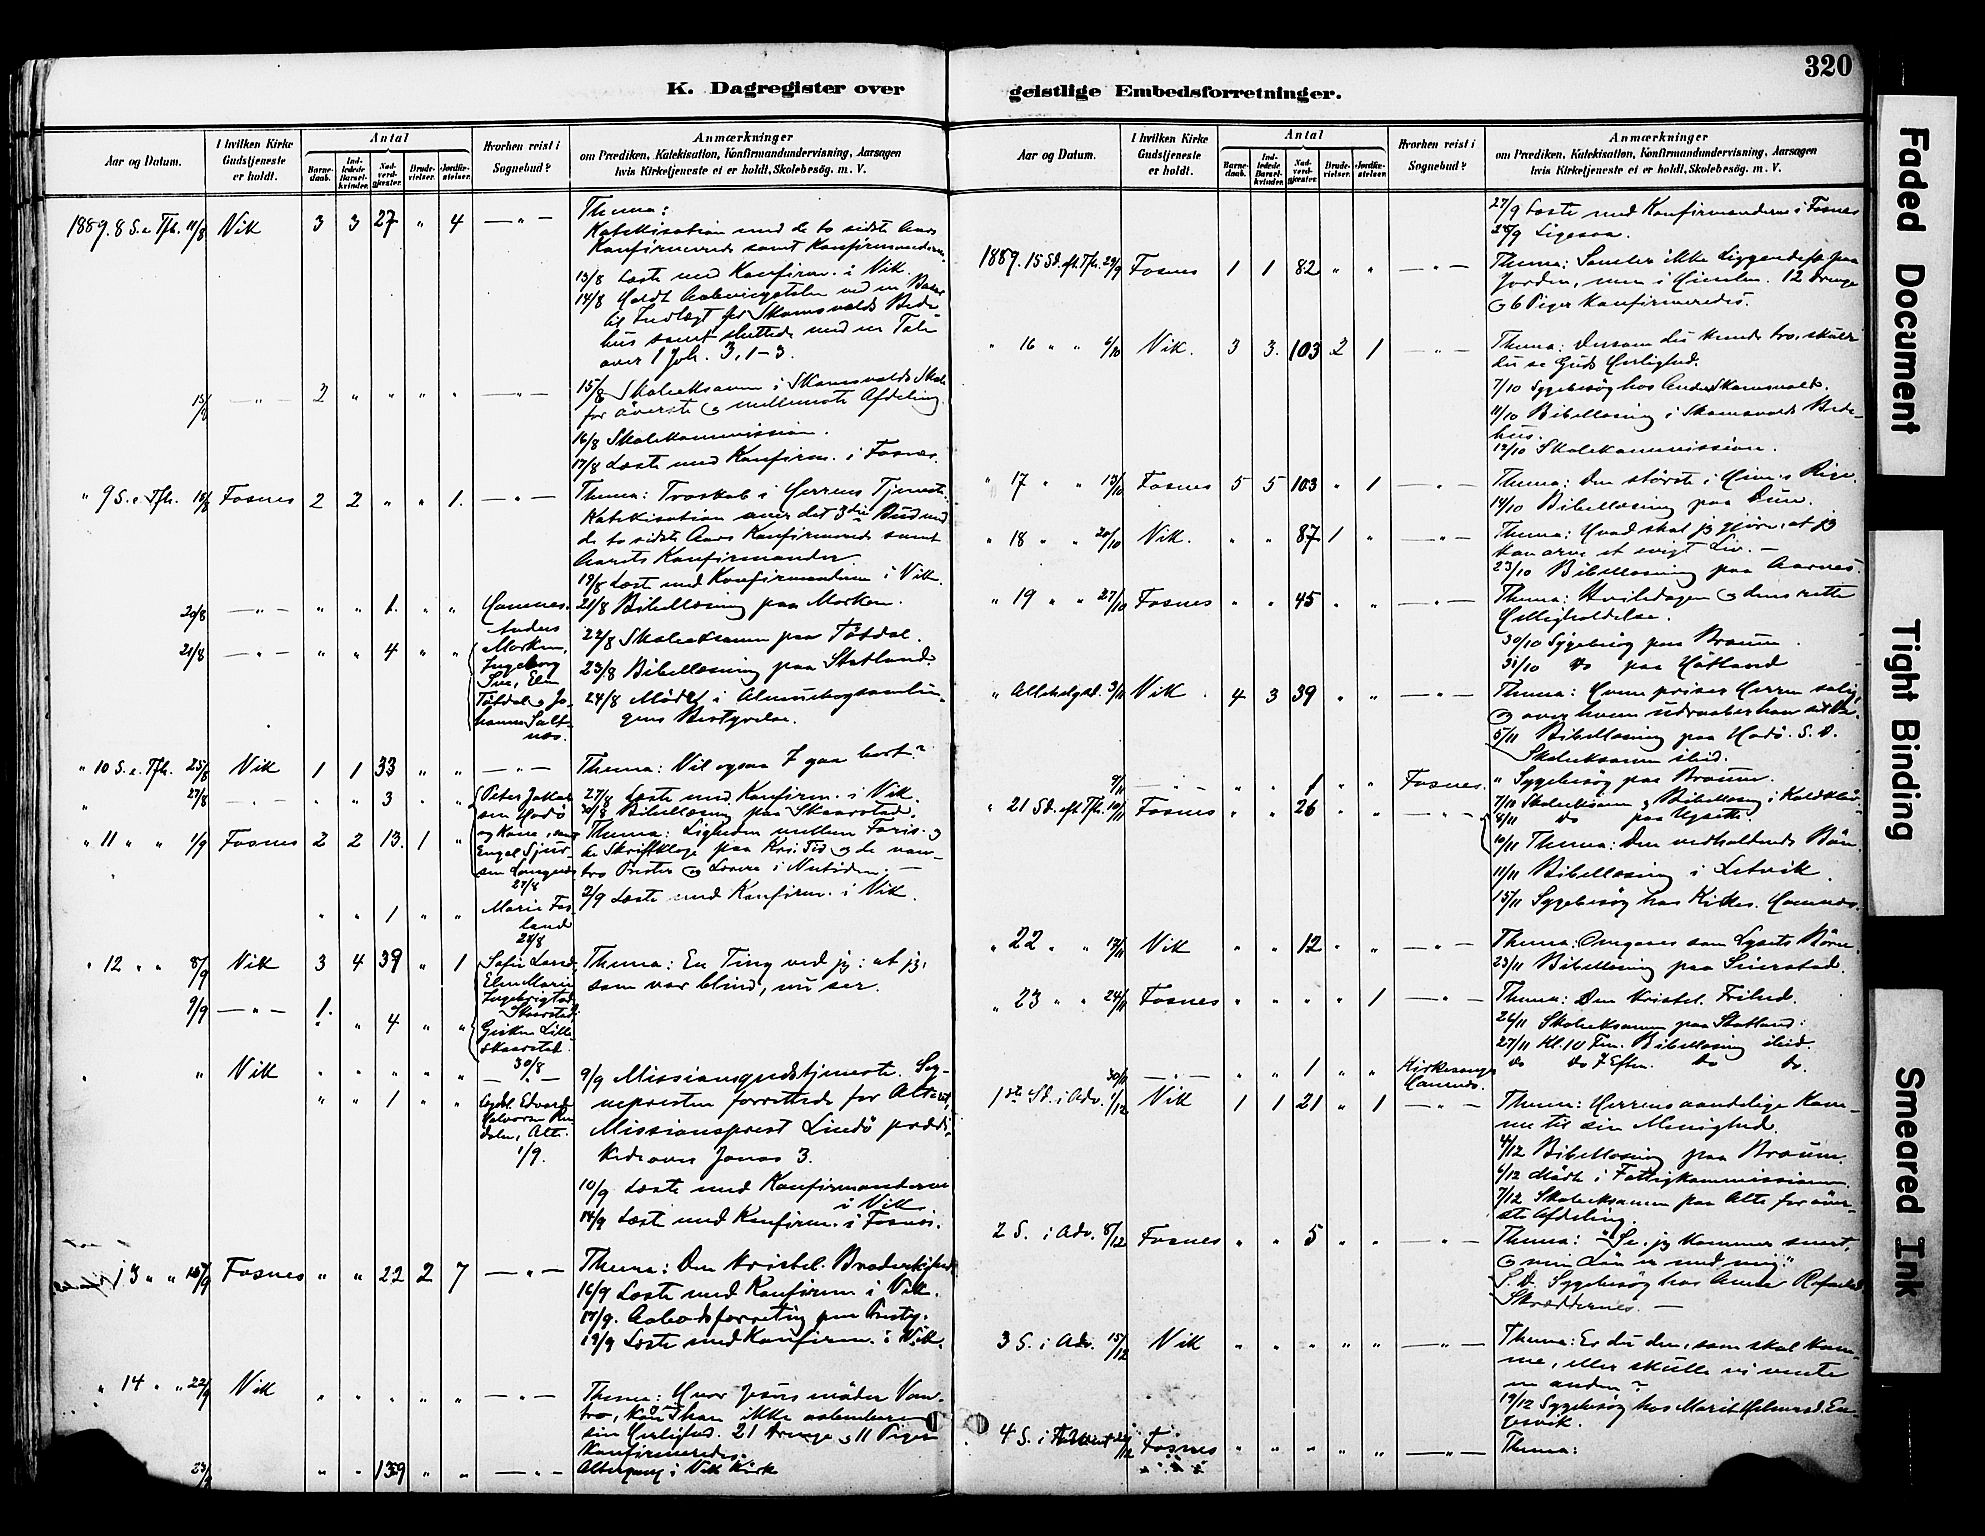 320
K. Dagregister over
geistlige Embedsforretninger.
Aar og Datum.
I hvilken Kirke
Gudstjeneste
er holdt.
Antal
Barne-
daab.
Ind-
ledede
Barsel-
kvinder.
Nad-
verd-
gjester.
Brude-
vielser.
Jordfæ-
stelser.
Hvorhen reist i
Sognebud?
Anmærkninger
om Prædiken, Katekisation, Konfirmandundervisning, Aarsagen
hvis Kirketjeneste ei er holdt, Skolebesøg. m. V.
1889. 8 S. e. Tfh. 11/8 Vik 3 3 27 " 4 — " — Thema:
Katekisation med de to sidste Aars
Konfirmerede samt Konfirmanderne.
13/8 Læste med Konfirm. i Vik.
14/8 Holdt Aabningstalen ved en Basar
til Indtægt for Skomsvolds Bede-
hus samt sluttede med en Tale
over 1 Joh. 3, 1-3.
15/8 — " — 2 " " " " — " — 15/8 Skoleeksamen i Skomsvolds Skole
for øverste og mellemste Afdeling
16/8 Skolekommission.
17/8 Læste med Konfirm. i Fosnes.
" 9 S. e. Tfh. 18/8 Fosnes 2 2 " " 1. — " — Thema: Troskab i Herrens Tjeneste.
Katekisation over det 3die Bud med
de to sidste Aars Konfirmerede samt
Aarets Konfirmander.
19/8 Læste med Konfirmanderne i Vik.
20/8 — " — " " 1. " " Hannes. 21/8 Bibellæsning paa Morken.
21/8 — " — " " 4 " " Anders
Morken,
Ingeborg
Sve, Elen
Tøtdal, Jo-
hanna Salt-
næs.
22/8 Skoleeksamen paa Tøtdal.
23/8 Bibellæsning paa Statland.
24/8 Møde i Almuebogsamlin-
gens Bestyrelse.
" 10 S. e. Tfh. 25/8 Vik 1 1 33 " " — " — Thema: Vil ogsaa I gaa bort?
" 27/8 — " — " " 3 " " Peter Jakob-
sen Hodø
og Kone, samt
Engel Sjur-
sen Langnes
27/8
27/8 Læste med Konfirm. i Vik.
30/8 Bibellæsning paa Skaarstad.
" 11 " " 1/9 Fosnes 2 2 13. 1 " Thema: Ligheden mellem Faris. og
de Skriftkloge paa Kri. Tid og de van-
tro Prester og Lærere i Nutiden. —
2/9 Læste med Konfirm. i Vik.
" " 1 " " Marie Fos-
land
28/8
" 12 " " 8/9 Vik 3 4 39 " 1 Sofie Larsd.
Elen Marie
Ingebrigtsd.
Skaarstad
Gisken Lille
Skaarstad.
30/8
Thema: En Ting ved jeg: at jeg,
som var blind, nu ser.
9/9 — " — 1. " 4 " "
" " Vik " " " " " — " — 9/9 Missionsgudstjeneste. Sog-
nepresten forrettede for Alteret,
Missionsprest Lindø prædi-
kede over Jonas 3.
" " 1 " " Edvard
Halvorsen
Alte.
1/9.
10/9 Læste med Konfirmanderne
i Vik
14/9 Læste med Konfirm. i Fosnes.
13 " " 15/9 Fosnes " " 22 2 7 — " — Thema: Den kristel. Broderkjærl.
16/9 Læste med Konfirm. i Vik.
17/9. Aabodsforretning paa
19/9 Læste med Konfirm. i Vik.
" 14 " " 22/9 Vik " " " " " — " — Thema: Hvor Jesus møder Van-
tro, kan han ikke aabenbare
sin Herlighed. 21 Drenge og 11 Piger
konfirmeredes.
23/9 " " 139 " " — " — Altergang i Vik Kirke
Aar og Datum.
I hvilken Kirke
Gudstjeneste
er holdt.
Antal
Barne-
daab.
Ind-
ledede
Barsel-
kvinder.
Nad-
verd-
gjester.
Brude-
vielser.
Jordfæ-
stelser.
Hvorhen reist i
Sognebud?
Anmærkninger
om Prædiken, Katekisation, Konfirmandundervisning, Aarsagen
hvis Kirketjeneste ei er holdt, Skolebesøg. m. V.
27/9 Læste med Konfirmanderne i Fosnes
28/9 Ligesaa.
1889. 15 Sd. eft. Tfh. 29/9 Fosnes 1 1 82 " " — " — Thema: Samler ikke Liggendefæ paa
Jorden, men i Himlen. 12 Drenge
og 6 Piger konfirmeredes.
" 16 " " 6/10 Vik. 3 3. 103 2 1 — " — Thema: Dersom du kunde tro, skulde
du se Guds Herlighed.
7/10 Sygebesøg hos Anders Skomsvold.
11/10 Bibellæsning i Skomsvolds Bede-
hus.
12/10 Skolekommission.
" 17 " " 13/10 Fosnes 5 5 103 " 1 — " — Thema: Den største i Him.s Rige.
14/10 Bibellæsning paa Duun.
" 18 " " 20/10 Vik. " " 87 1 " — " — Thema: Hvad skal jeg gjøre, at jeg
kan arve et evigt Liv. —
23/10 Bibellæsning paa Aarnes.
" 19 " " 27/10 Fosnes " " 45 " " — " — Thema: Hviledagen og dens rette
Helligholdelse.
30/10 Sygebesøg paa Braum.
31/10 do paa Høtland
" Allehelgsd. 3/11 Vik. 4 3 39 " " — " — Thema: Hvem priser Herren salig,
og over hvem udraaber han sit Ve.
5/11 Bibellæsning paa Hodø. S. D.
Skoleeksamen ibid.
9/11 — " — " " 1 " " Fosnes. " Sygebesøg paa Braum.
" 21 Sd. eft. Tfh. 10/11 Fosnes " " 26 " " — " — 7/10 Skoleeksamen og Bibellæsn. i
8/11 do paa
10/11 Thema: Den vedholdende Bøn.
11/11 Bibellæsning i Letvik.
15/11 Sygebesøg hos Kirkes. Hannes.
" 22 " " 17/11 Vik " " 12 " " — " — Thema: Omgaaes som Lysets Børn.
23/11 Bibellæsning paa Seierstad.
" 23 " " 24/11 Fosnes " " " " 1 — " — Thema: Den kristel. Frihed.
26/11 Skoleeksamen paa Statland.
27/11 Kl. 10 Fm. Bibellæsning ibid.
do do 7 Eftm. do do.
30/11 — " — " " 1 " " Kirkesang.
Hannes.
1ste Sd. i Adv. 1/12 Vik 1 1 21 " 1 — " — Thema: Herrens aandelige Kom-
me til sin Menighed.
4/12 Bibellæsning paa Braum.
6/12 Møde i Fattigkommissionen.
7/12 Skoleeksamen paa Alte for øver-
ste Afdeling.
2 S. i Adv. 8/12 Fosnes " " 5 " " — " — Thema: "Se, jeg kommer snart,
og min Løn er med mig."
S. D. Sygebesøg hos Anna
Skræddernes. —
3 S. i Adv. 15/12 Vik " " " " " — " — Thema: Er du den, som skal kom-
me, eller skulle vi vente
en anden?
19/12 Sygebesøg hos Marit Helmersd. En-
gesvik.
4 S. i Advent 22/12 Fosnes " " " " " — " — Thema:
Faded Document
Tight Binding
Smeared Ink